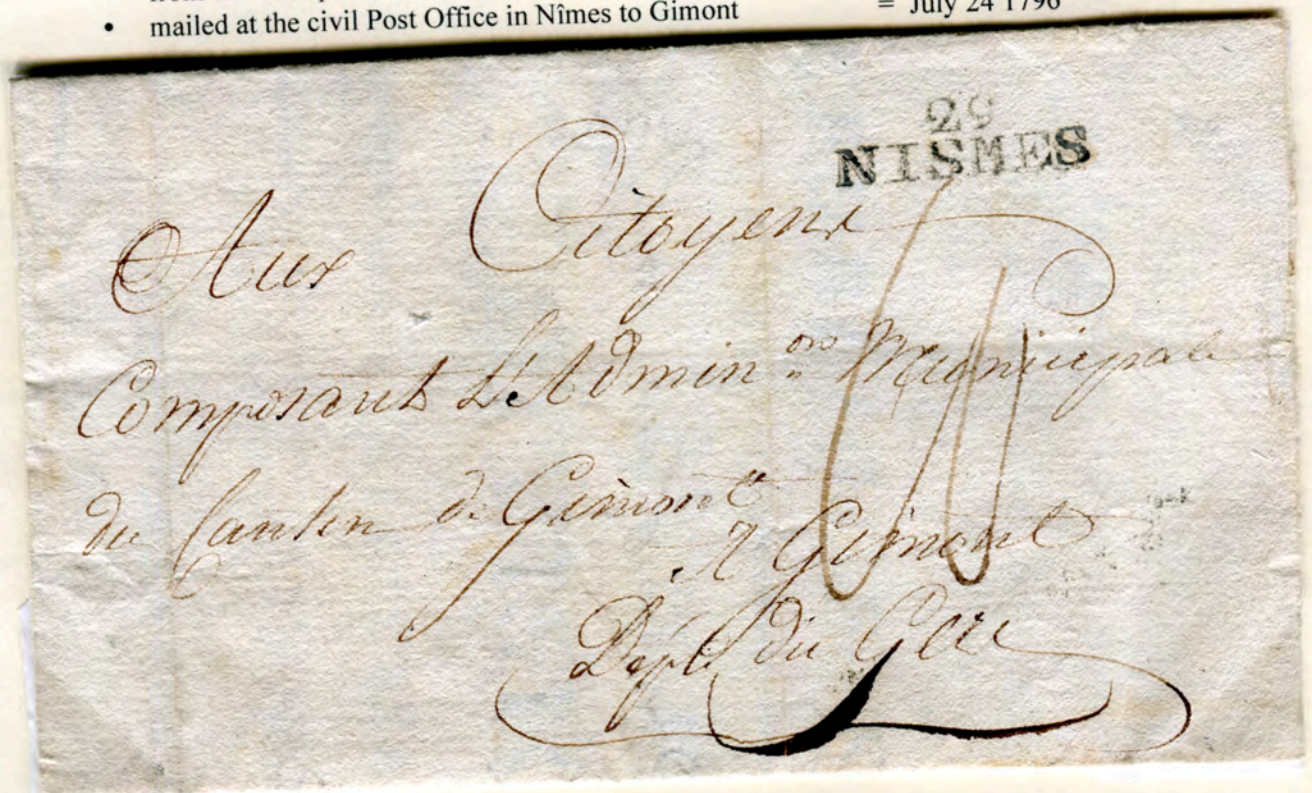 • mailed at the civil Post Office in Nîmes to Gimont
= July 24 1796
29
NISMES
Aux Citoyens
Composant L'Admin.on Municipale
du Canton de Gimont
A Gimont
Dépt. du Gers